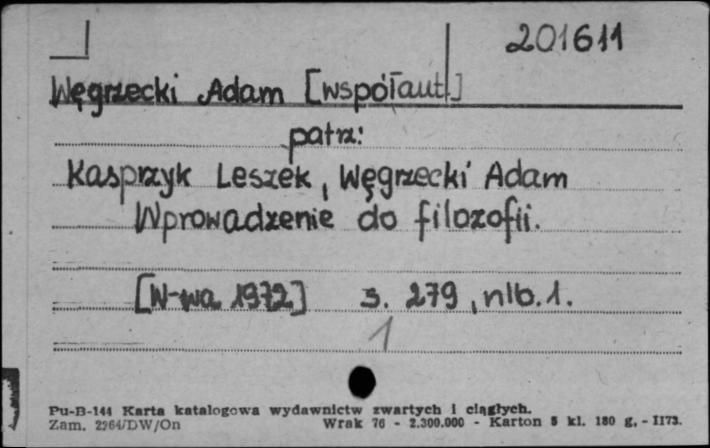 201611
Węgrzecki Adam [współaut.]
patrz:
Kasprzyk Leszek, Węgrzecki Adam
Wprowadzenie do filozofii.
[W-wa 1972] s. 279, nlb. 1.
1
Pu-B-144 Karta katalogowa wydawnictw zwartych i ciągłych.
Zam. 2264/DW/On Wrak 76 - 2.300.000 - Karton 5 kl. 180 g. - II73.